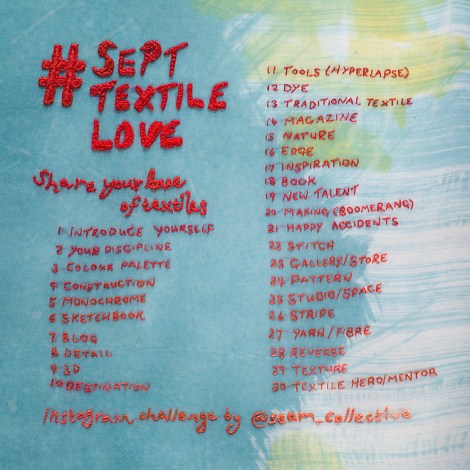 #SEPT
TEXTILE
LOVE
Share your love
of textiles
1 INTRODUCE YOURSELF
2 YOUR DISCIPLINE
3 COLOUR PALETTE
4 CONSTRUCTION
5 MONOCHROME
6 SKETCHBOOK
7 BLOG
8 DETAIL
9 3D
10 DESTINATION
11 TOOLS (HYPERLAPSE)
12 DYE
13 TRADITIONAL TEXTILE
14 MAGAZINE
15 NATURE
16 EDGE
17 INSPIRATION
18 BOOK
19 NEW TALENT
20 MAKING (BOOMERANG)
21 HAPPY ACCIDENTS
22 STITCH
23 GALLERY/STORE
24 PATTERN
25 STUDIO/SPACE
26 STRIPE
27 YARN/FIBRE
28 REVERSE
29 TEXTURE
30 TEXTILE HERO/MENTOR
instagram challenge by @seam_collective